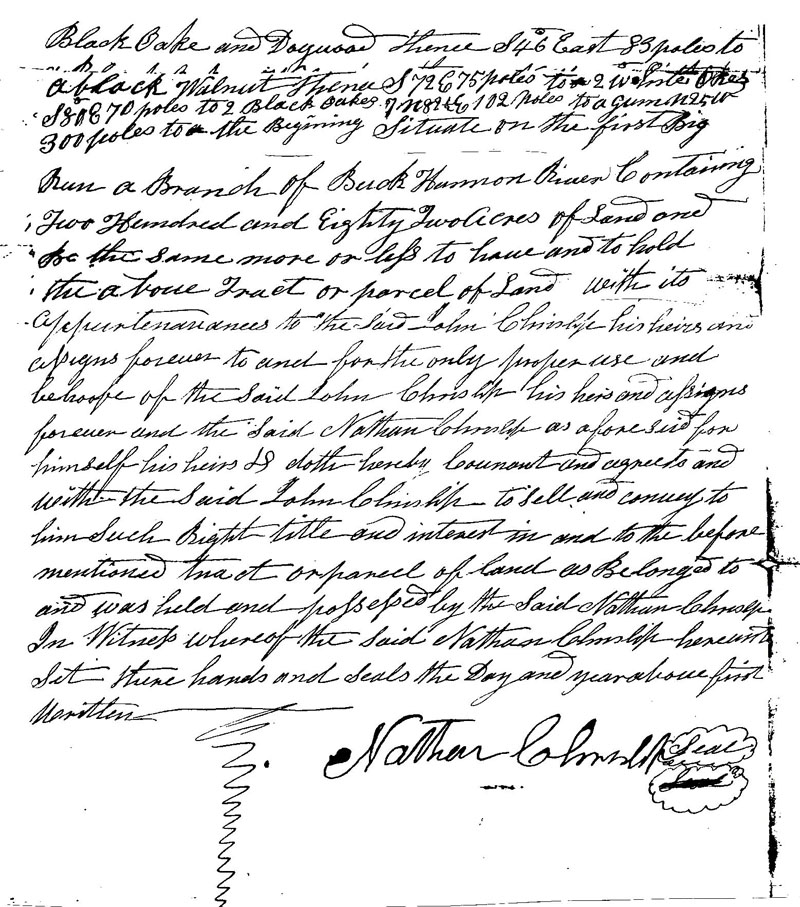 Black Oake and Dogwood Thence S46 East 83 poles to
a black Walnut Thence S 72 E 75 poles to 2 White Okes
S30E 70 poles to 2 Black Oakes N82E 102 poles to a Gum N25W
300 poles to the Begining Situate on the first Big
Run a Branch of Buck Hannon River Containing
Two Hundred and Eighty Two Acres of Land and
the same more or less to have and to hold
the above Tract or parcel of Land with its
appurtenanances to the Said John Chrislip his heirs and
assigns forever to and for the only proper use and
behoofe of the Said John Chrislip his heirs and assigns
forever and the Said Nathan Chrislip as afore seid for
himself his heirs &c doth hereby Covenant and agree to and
with the Said John Chrislip to sell and convey to
him Such Right title and interest in and to the before
mentioned tract or parcel of land as Belonged to
and was held and possessed by the Said Nathan Chrislip
In Witness whereof the said Nathan Chrislip hereunto
Set there hands and seals the Day and year above first
Written
Nathan Chrislip Seal